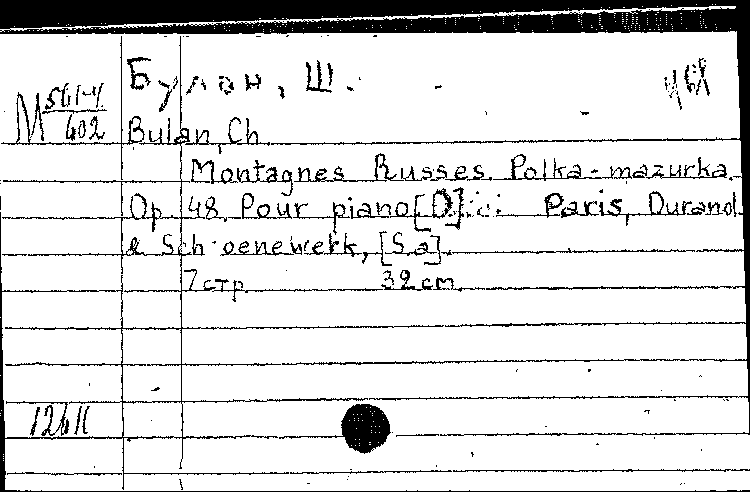 Булан, Ш.
М 561-4/602
Bulan, Ch.
Montagnes Russes. Polka-mazurka.
Op. 48. Pour piano [D]. Paris, Durand
& Schoenewerk, [S.a].
7 стр. 32 cm.